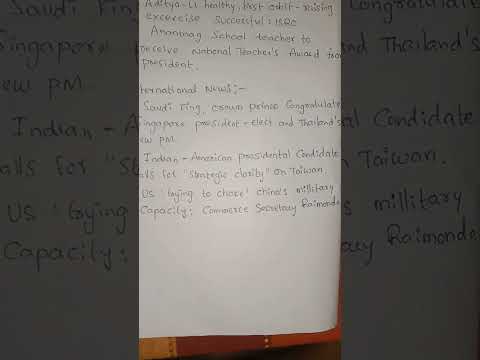 Aditya-L1 healthy, first orbit-raising
excercise successful: ISRO
Anantnag School teacher to
receive National Teacher's Award from
president.
ternational News:-
Saudi King, crown prince Congratulate
Singapore president-elect and Thailand's
ew PM.
Indian-American presidental Candidate
alls for "strategic clarity" on Taiwan.
US 'trying to choke' china's millitary
Capacity: Commerce Secretary Raimondo